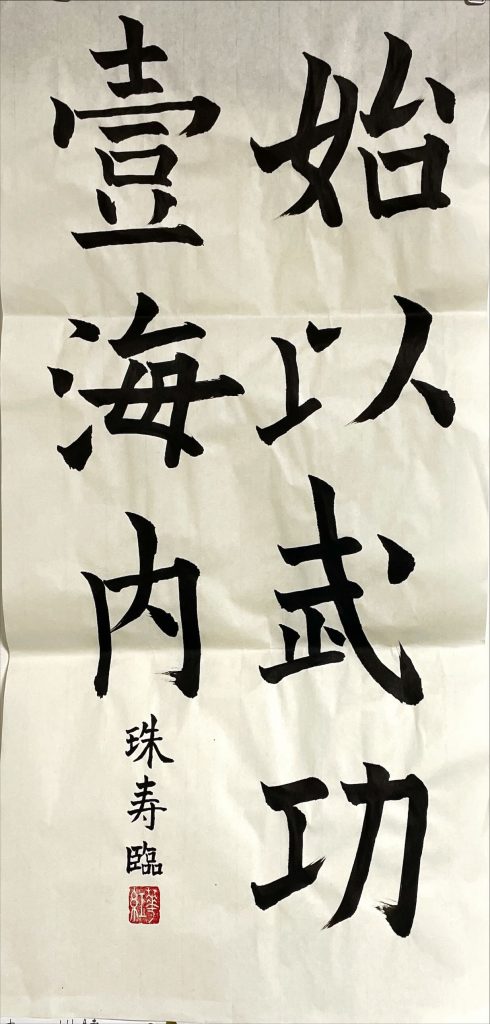 始以武功
壹海内
珠寿臨